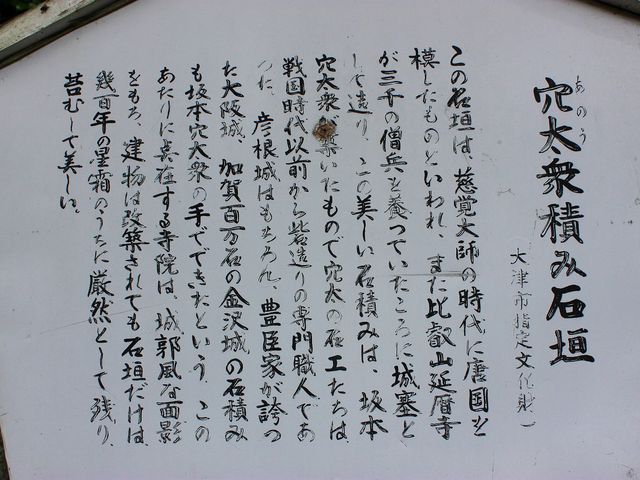 あのう
穴太衆積み石垣
（大津市指定文化財）
この石垣は、慈覚大師の時代に唐国を
模したものといわれ、また比叡山延暦寺
が三千の僧兵を養っていたころに城塞と
して造り、この美しい石積みは、坂本
穴太衆が築いたもので穴太の石工たちは
戦国時代以前から砦造りの専門職人であ
った、彦根城はもちろん、豊臣家が誇っ
た大阪城、加賀百万石の金沢城の石積み
も坂本穴太衆の手でできたという、この
あたりに点在する寺院は、城郭風な面影
をもち、建物は改築されても石垣だけは、
幾百年の星霜のうちに厳然として残り、
苔むして美しい。